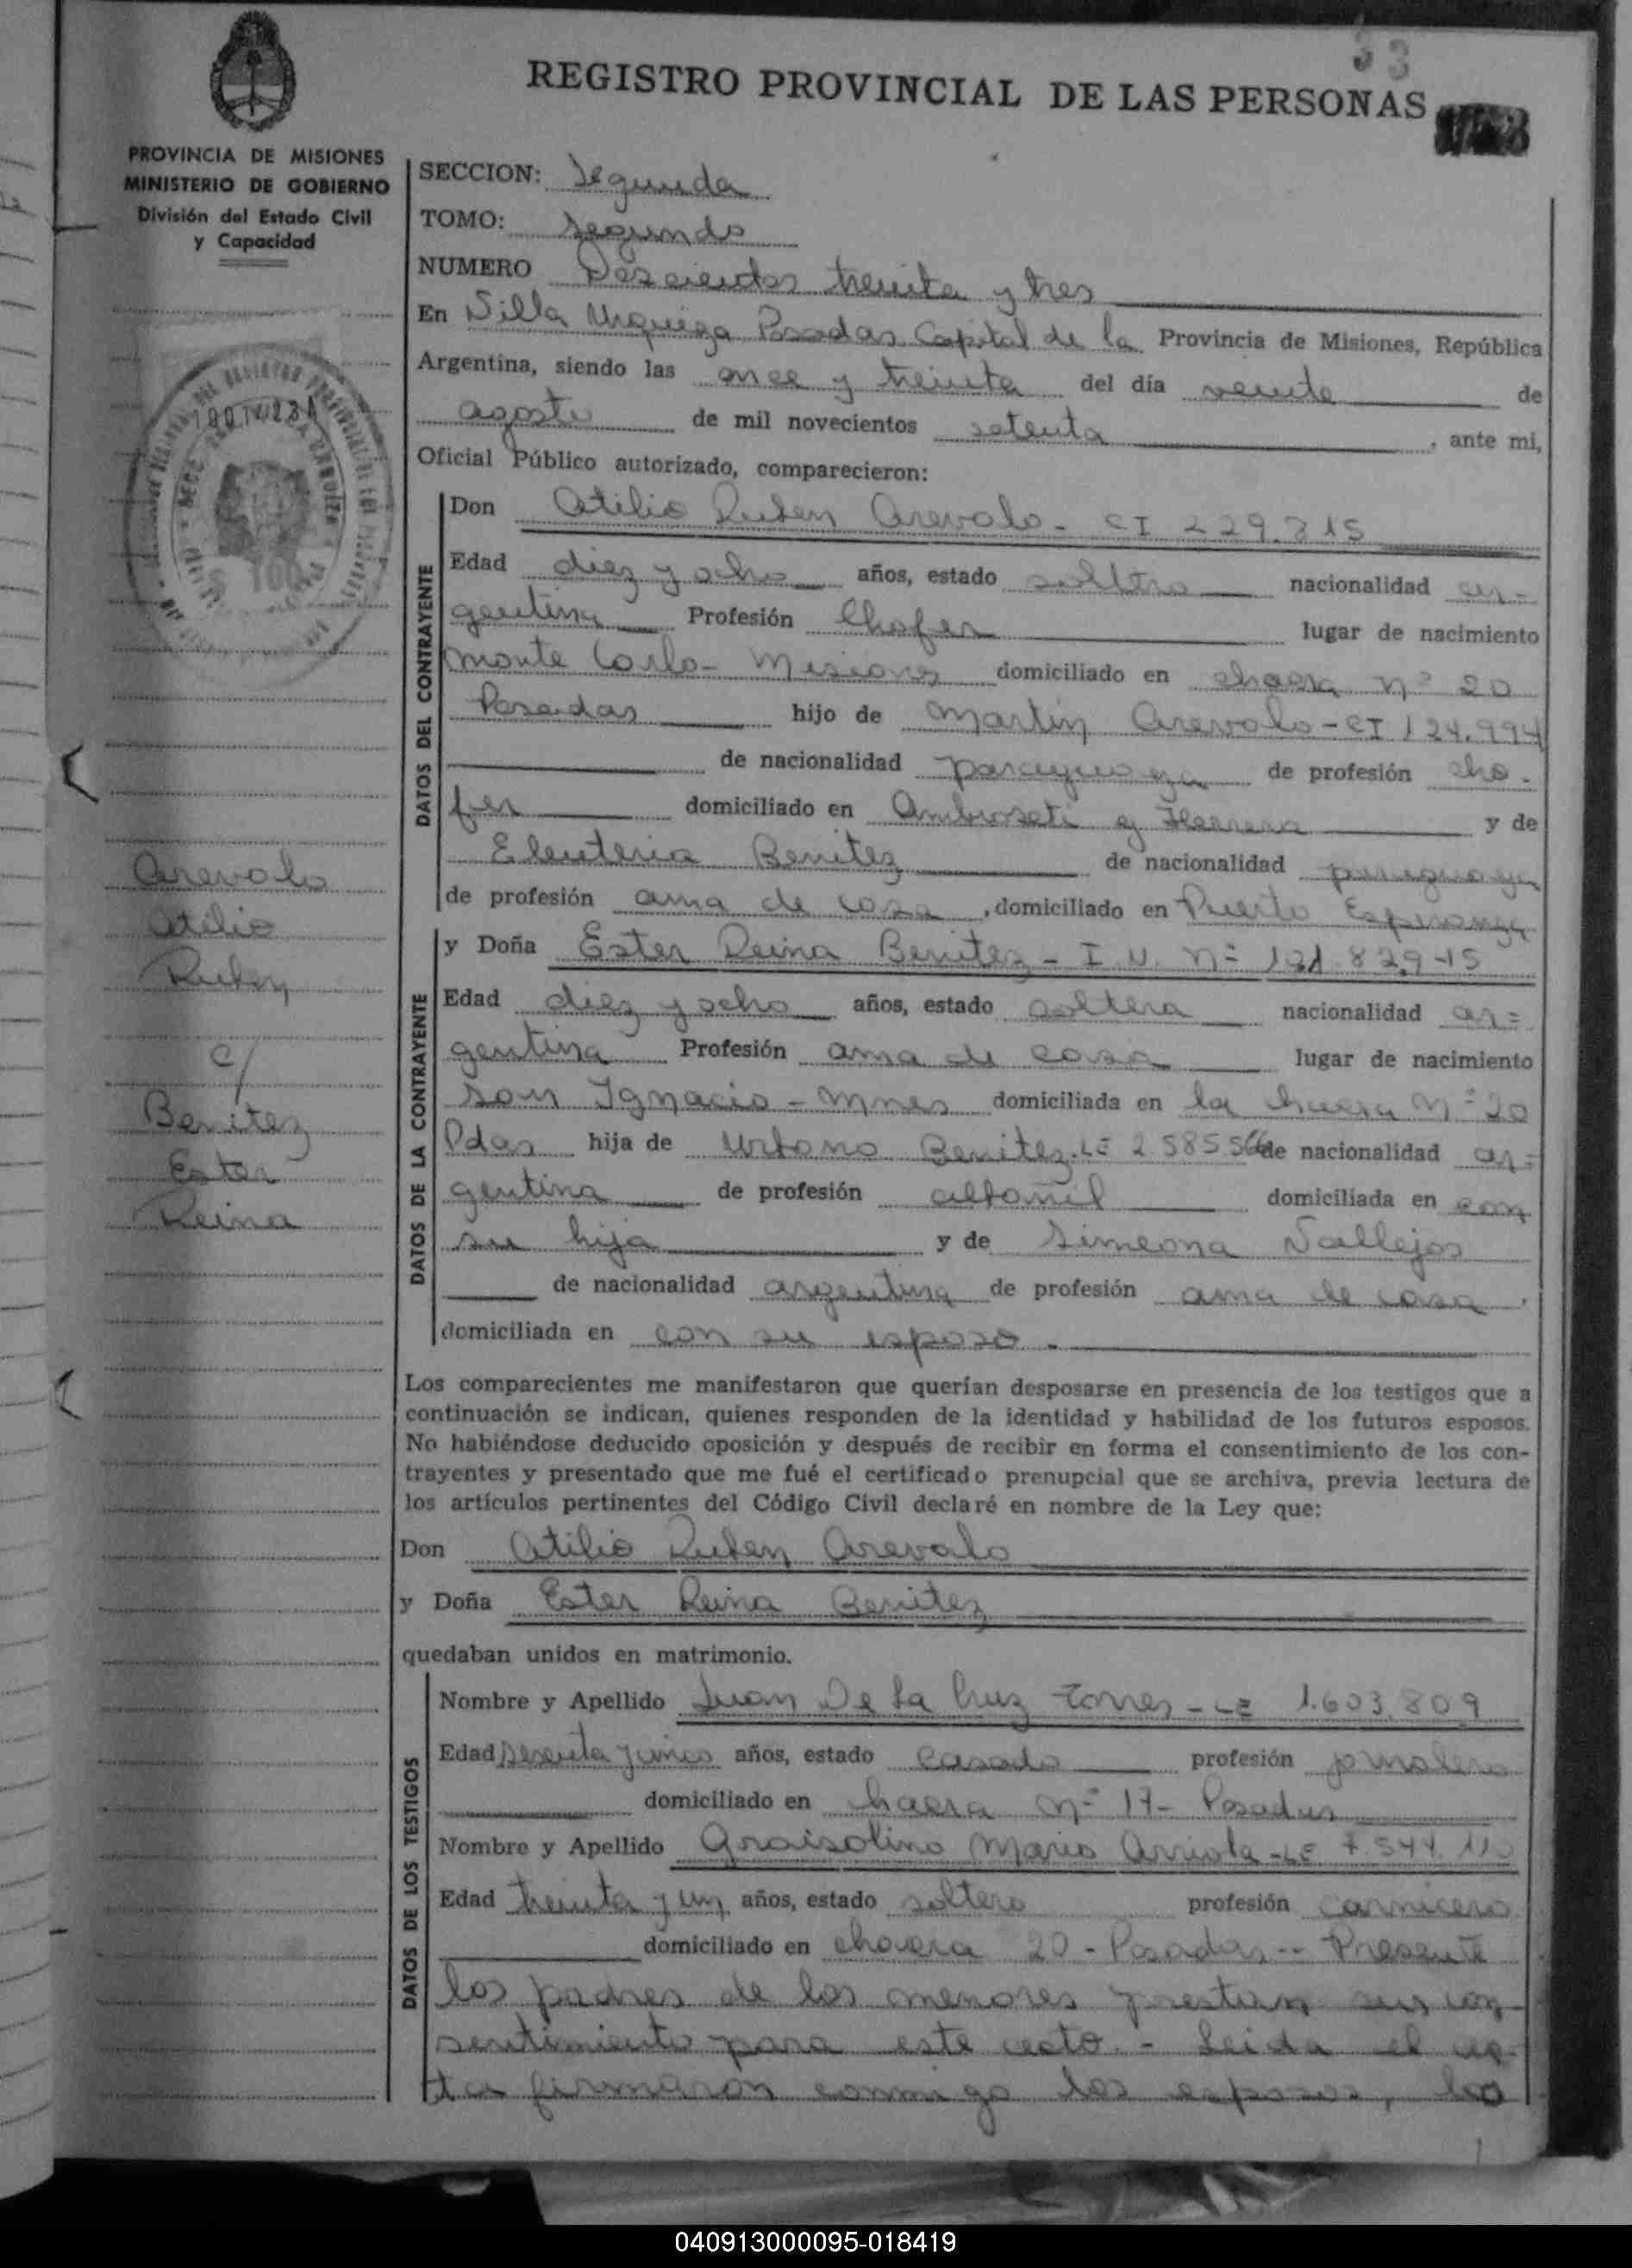 33
REGISTRO PROVINCIAL DE LAS PERSONAS
PROVINCIA DE MISIONES
MINISTERIO DE GOBIERNO
División del Estado Civil
y Capacidad
SECCION: Segunda
TOMO: Segundo
NUMERO Doscientos treinta y tres
En Villa Urquiza Posadas Capital de la Provincia de Misiones, República
Argentina, siendo las once y treinta del día veinte de
agosto de mil novecientos setenta, ante mi,
Oficial Público autorizado, comparecieron:
DATOS DEL CONTRAYENTE
Don Atilio Ruben Arevalo - CI 229.815
Edad diez y ocho años, estado soltero nacionalidad ar-
gentina Profesión Chofer lugar de nacimiento
Monte Carlo - Misiones domiciliado en chacra nº 20
Posadas hijo de Martin Arevalo - CI 124.994
de nacionalidad paraguaya de profesión cho-
fer domiciliado en Ambroseti y Herrera y de
Eleuteria Benitez de nacionalidad paraguaya
de profesión ama de casa, domiciliado en Puerto Esperanza
DATOS DE LA CONTRAYENTE
y Doña Ester Reina Benitez - I.N. nº
Edad diez y ocho años, estado soltera nacionalidad ar=
gentina Profesión ama de casa lugar de nacimiento
San Ignacio - Mnes domiciliada en la chacra Nº 20
Pdas hija de Urbano Benitez. LE de nacionalidad ar=
gentina de profesión albañil domiciliada en con
su hija y de Simeona Vallejos
de nacionalidad argentina de profesión ama de casa,
domiciliada en con su esposo.-
Arevalo
Atilio
Ruben
c/
Benitez
Ester
Reina
Los comparecientes me manifestaron que querían desposarse en presencia de los testigos que a
continuación se indican, quienes responden de la identidad y habilidad de los futuros esposos.
No habiéndose deducido oposición y después de recibir en forma el consentimiento de los con-
trayentes y presentado que me fué el certificado prenupcial que se archiva, previa lectura de
los artículos pertinentes del Código Civil declaré en nombre de la Ley que:
Don Atilio Ruben Arevalo
y Doña Ester Reina Benitez
quedaban unidos en matrimonio.
DATOS DE LOS TESTIGOS
Nombre y Apellido Juan De La Cruz Torres - LE 1.603.809
Edad años, estado casado profesión jornalero
domiciliado en chacra nº 17 - Posadas
Nombre y Apellido Mario Arriola - LE 7.544.110
Edad treinta y un años, estado soltero profesión carnicero
domiciliado en chacra 20 - Posadas -- Presente
los padres de los menores prestan su con-
sentimiento para este acto. - Leida el ac-
ta firmaron conmigo los esposos, los
040913000095-018419